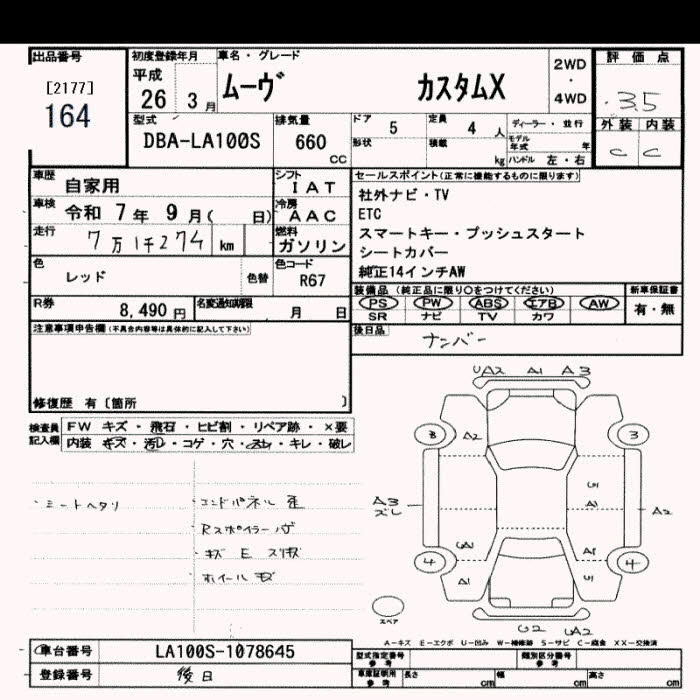 出品番号
[2177]
164
初度登録年月
平成
26 3月
車名・グレード
ムーヴ カスタムX
2WD
・
4WD
評価点
3.5
外装 内装
C C
型式
DBA-LA100S
排気量
660
cc
ドア 5
形状
定員 4 人
積載 kg
ディーラー・並行
モデル年式 年
ハンドル 左・右
車歴 自家用
車検 令和 7年 9月( 日)
走行 7万1千274 km
色 レッド 色替
シフト IAT
冷房 AAC
燃料 ガソリン
色コード R67
セールスポイント(正常に機能するものに限ります)
社外ナビ・TV
ETC
スマートキー・プッシュスタート
シートカバー
純正14インチAW
装備品(純正品に限り○をつけてください)
PS PW ABS エアB AW
SR ナビ TV カワ
新車保証書
有・無
R券 8,490円
名変通知期限 月 日
後日品
ナンバー
注意事項申告欄(不具合内容等は具体的に記入して下さい)
修復歴 有〔箇所 〕
検査員記入欄
FW キズ・飛石・ヒビ割・リペア跡・×要
内装 キズ・汚レ・コゲ・穴・スレ・キレ・破レ
・シートヘタリ
・コンドパネル歪
・Rスポイラーハゲ
・キズ E スリ傷
・ホイールキズ
UA2 A1 A3
3 A2 3
A3
ズレ
A1
A2
4 A1 4
スペア
U2 UA2
A-キズ E-エクボ U-凹み W-補修跡 S-サビ C-腐食 XX-交換済
車台番号 LA100S-1078645
登録番号 後日
型式指定番号
参考
類別区分番号
参考
車庫証明用
参考
長さ cm
幅 cm
高さ cm